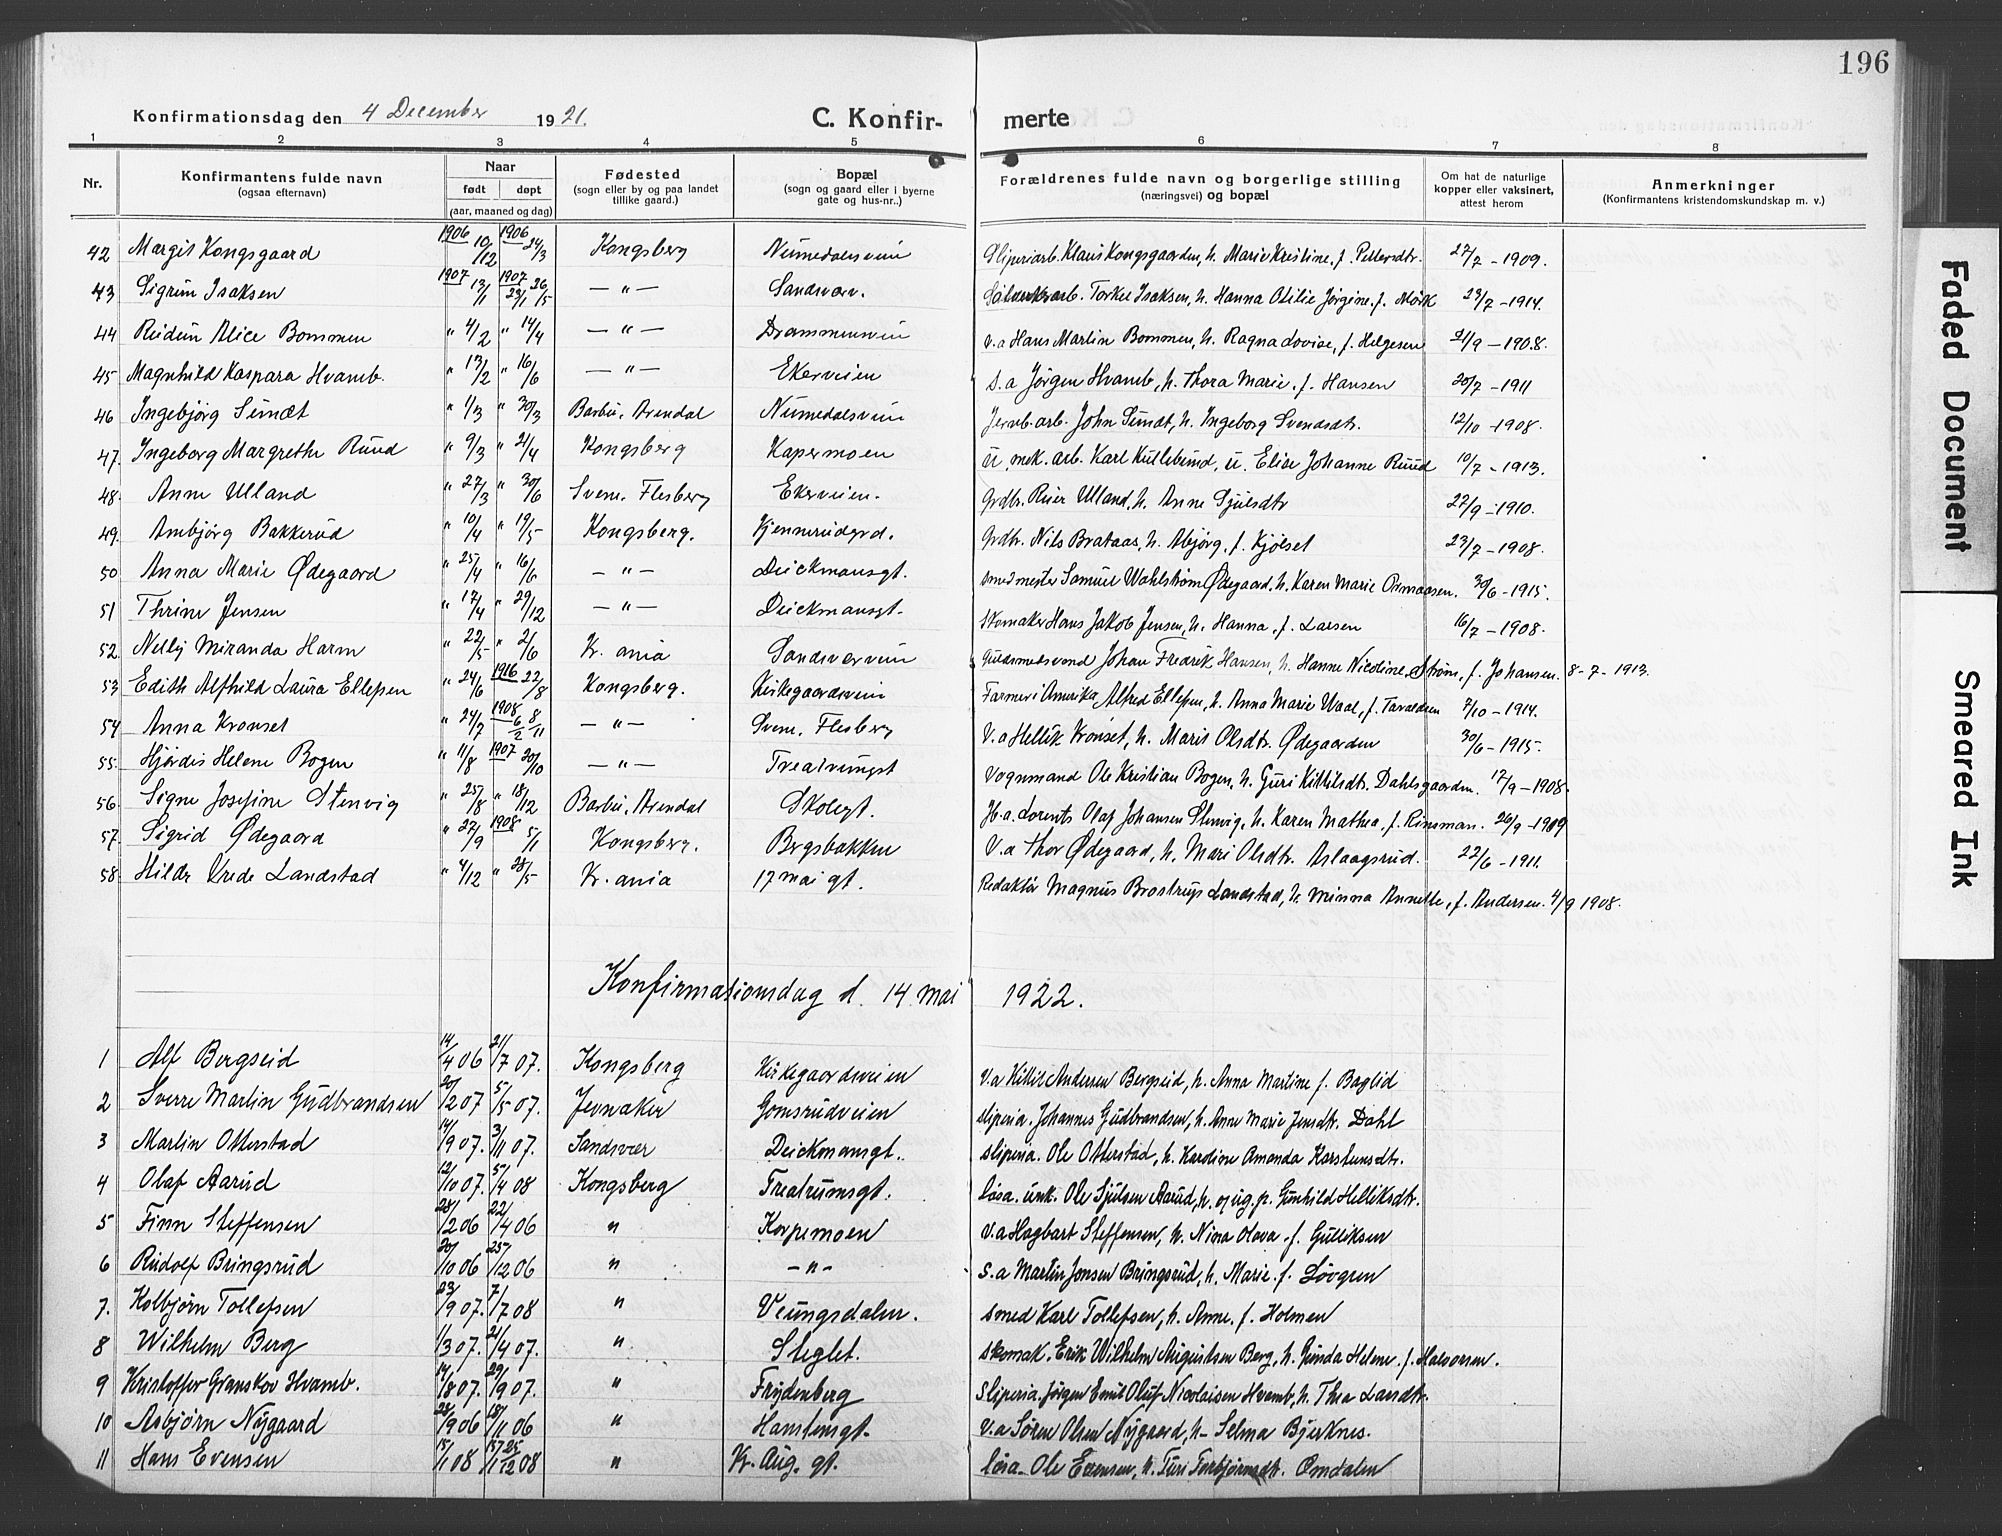 196
Konfirmationsdag den 4 December 1921. C. Konfir- merte
1 2 3 4 5 6 7 8
Nr. Konfirmantens fulde navn (ogsaa efternavn) Naar født døpt (aar, maaned og dag) Fødested (sogn eller by og paa landet tillike gaard.) Bopæl (sogn og gaard eller i byerne gate og hus-nr.) Forældrenes fulde navn og borgerlige stilling (næringsvei) og bopæl Om hat de naturlige kopper eller vaksinert, attest herom Anmerkninger (Konfirmantens kristendomskundskap m. v.)
42 Margit Kongsgaard 1906 10/12 1906 24/3 Kongsberg Numedalsveien Sliperiarb. Klaus Kongsgaarden, h. Marie Kristine, f. Pettersdtr. 27/7 - 1909.
43 Sigrun Isaksen 1907 13/1 1907 23/1 26/5 — " — Sandsværv. Sölvverksarb. Torkel Isaksen, h. Hanna Otilie Jørgine, f. Mørk 23/7 - 1914.
44 Reidun Alice Bommen " 4/2 " 14/4 — " — Drammensveien v.a Hans Martin Bommen, h. Ragna Lovise, f. Helgesen 21/9 - 1908.
45 Magnhild Kaspara Hvamb. " 13/2 " 16/6 — " — Ekerveien s.a Jørgen Hvamb, h. Thora Marie, f. Hansen 20/7 - 1911
46 Ingebjörg Sundt " 1/3 " 30/3 Barbu, Arendal Numedalsveien Jernb.arb. John Sundt, h. Ingeborg Svendsdtr. 12/10 - 1908.
47. Ingeborg Margrethe Ruud " 9/3 " 21/4 Kongsberg Kapermoen u. mek. arb. Karl Kullebund, u. Elise Johanne Ruud 10/7 - 1913.
48. Anne Ulland " 27/3 " 30/6 Svene, Flesberg Ekerveien. Grdbr. Reier Ulland, h. Anne Sjulsdtr 22/9 - 1910.
49. Ambjörg Bakkerud " 10/4 " 19/5 Kongsberg. Kjennerudgrd. Grdbr. Nils Brataas, h. Abjørg, f. Kjölset 23/7 - 1908.
50 Anna Marie Ødegaard " 25/4 " 16/6 — " — Dickmansgt. smedmester Samuel Wahlstrøm Ødegaard, h. Karen Marie Osmansen. 30/6 - 1915.
51 Thrine Jensen " 17/4 " 29/12 — " — Deickmansgt. Skomaker Hans Jakob Jensen, h. Hanna, f. Larsen 16/7 - 1908.
52. Nelly Miranda Harm " 22/5 " 2/6 Kr.ania Sandsverveien Guldsmedsvend Johan Fredrik Hansen, h. Hanne Nicoline Strøm, f. Johansen. 8-7-1913.
53 Edith Alfhild Laura Ellefsen " 24/6 1916 22/8 Kongsberg. Kirkegaardsveien Farmer i Amerika Alfred Ellefsen, h. Anna Marie Waal, f. Tarvaldsen 7/10 - 1914.
54 Anna Kronset " 24/7 1908 6/2 8/11 — " — Svene, Flesberg V.a Hellik Kronset, h. Marit Olsdtr. Ødegaarden 30/6 - 1915.
55. Hjördis Helene Bogen " 11/8 1907 20/10 — " — Treatrumgt Vognmand Ole Kristian Bogen, h. Guri Kittilsdtr. Dahlsgaarden. 17/9 - 1908.
56 Signe Josefine Stenvig " 25/8 " 18/12 Barbu, Arendal Skolegt. H.a. Lorents Olaf Johansen Stenvig, h. Karen Mathea, f. Rinsman. 26/9 - 1909
57. Sigrid Ødegaard " 27/9 1908 5/1 Kongsberg. Bergsbakken V.a Thor Ødegaard, h. Mari Olsdtr. Aslaagsrud. 22/6 - 1911.
58. Hildr Vrede Landstad " 4/12 " 28/5 Kr.ania 17 mai gt. Redaktør Magnus Brostrup Landstad, h. Minna Annette, f. Andersen. 4/9 1908.
Konfirmationsdag d. 14. mai 1922.
1 Alf Bergseid 14/4 06 21/7 07. Kongsberg Kirkegaardsveien V.a Kittil Andersen Bergseid, h. Anna Martine f. Baglid
2 Sverre Martin Gudbrandsen 20/2 07 5/5 07. Jevnaker Gomsrudveien sliperia. Johannes Gudbrandsen, h. Anne Marie Jensdtr. Dahl
3 Martin Otterstad 14/9 07. 3/11 07. Sandsvær Deickmansgt. sliperia. Ole Otterstad, h. Kardine Amanda Karstensdtr.
4 Olaf Aarud 12/10 07. 5/4 08 Kongsberg Treatrumsgt. løsa. unk. Ole Sjulsen Aarud, h. og ug. p. Gunhild Helliksdtr.
5 Finn Steffensen 28/2 06 22/4 06 " Korpemoen v.a Hagbart Steffensen, h. Nina Olava f. Gulliksen
6 Rudolf Bringsrud 20/10 06 25/12 06 " — " — s.a Martin Jonsen Bringsrud, h. Marie f. Lövgren
7. Kolbjörn Tollefsen 23/9 07. 7/7 08 " Veungsdalen. smed Karl Tollefsen, h. Anne f. Holmen
8 Wilhelm Berg 1/3 07. 21/4 07. " Steglet. skomak. Erik Wilhelm Augustsen Berg, h. Gunda Helene f. Halvorsen.
9 Kristoffer Granskov Hvamb. 14/8 07. 29/9 07. " Frydenberg Sliperia. Jørgen Emil Oluf Nicolaisen Hvamb, h. Thea Larsdtr.
10 Asbjörn Nygaard 28/9 06 18/11 06 " Hansteensgt. V.a Søren Olsen Nygaard, h. Selma Bjerknes.
11 Hans Evensen 15/1 08 15/1 25/12 08 " Kr. Aug. gt. løsa. Ole Evensen, h. Turi Torbjørnsdtr. Omdalen
Faded Document
Smeared Ink